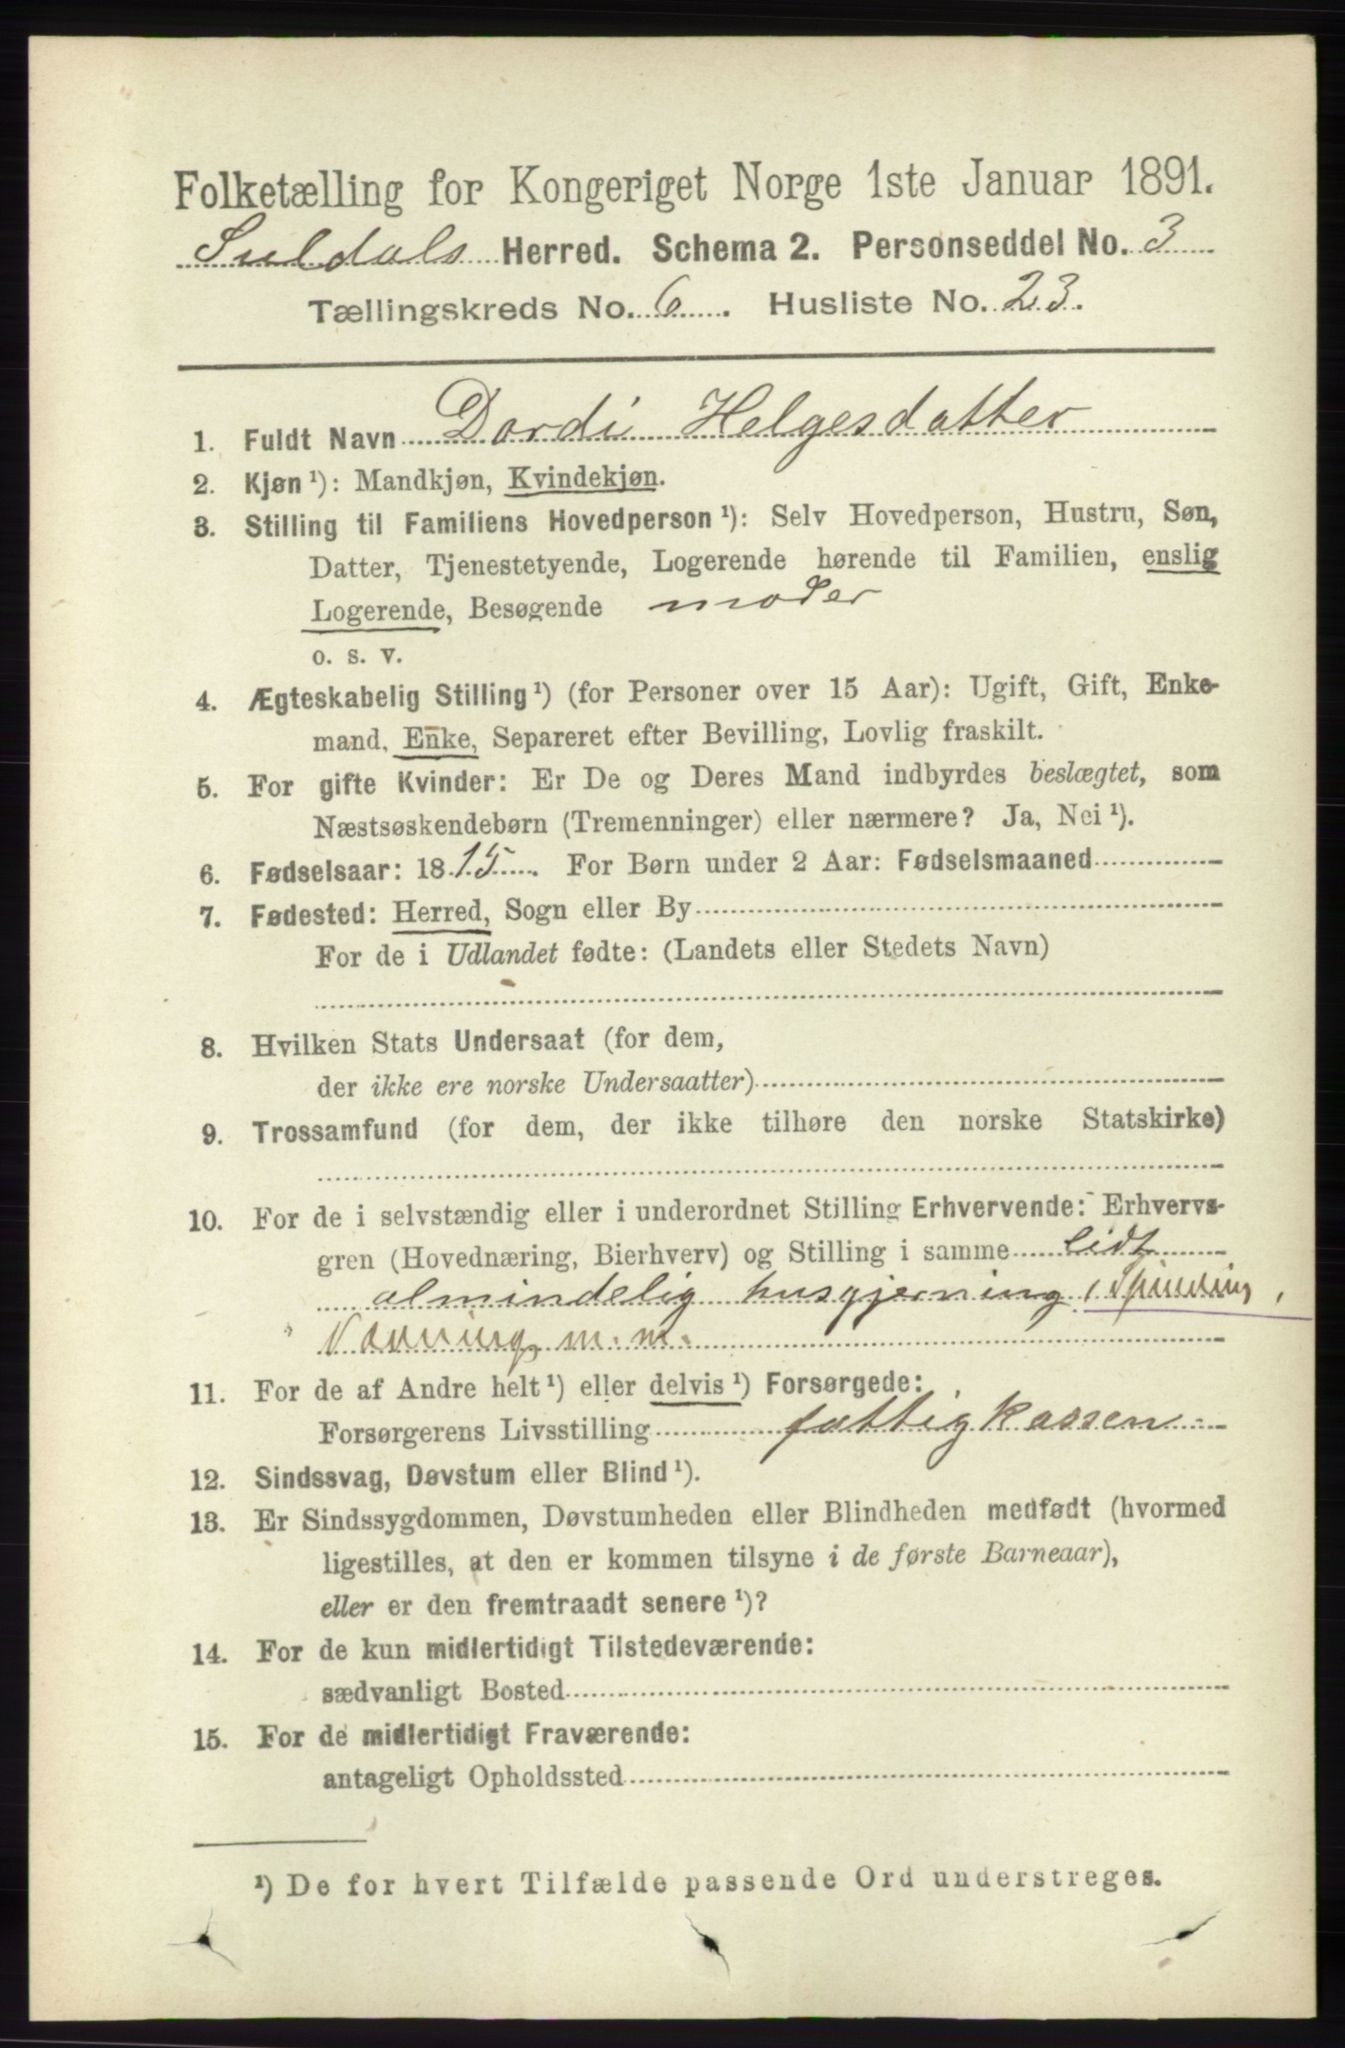 Folketælling for Kongeriget Norge 1ste Januar 1891.
Suldals Herred. Schema 2. Personseddel No. 3
Tællingskreds No. 6. Husliste No. 23.
1. Fuldt Navn Dordi Helgesdatter
2. Kjøn ¹): Mandkjøn, Kvindekjøn.
3. Stilling til Familiens Hovedperson ¹): Selv Hovedperson, Hustru, Søn,
Datter, Tjenestetyende, Logerende hørende til Familien, enslig
Logerende, Besøgende moder
o. s. v.
4. Ægteskabelig Stilling ¹) (for Personer over 15 Aar): Ugift, Gift, Enke-
mand, Enke, Separeret efter Bevilling, Lovlig fraskilt.
5. For gifte Kvinder: Er De og Deres Mand indbyrdes beslægtet, som
Næstsøskendebørn (Tremenninger) eller nærmere? Ja, Nei ¹).
6. Fødselsaar: 1815. For Børn under 2 Aar: Fødselsmaaned
7. Fødested: Herred, Sogn eller By
For de i Udlandet fødte: (Landets eller Stedets Navn)
8. Hvilken Stats Undersaat (for dem,
der ikke ere norske Undersaatter)
9. Trossamfund (for dem, der ikke tilhøre den norske Statskirke)
10. For de i selvstændig eller i underordnet Stilling Erhvervende: Erhvervs-
gren (Hovednæring, Bierhverv) og Stilling i samme lidt
almindelig husgjerning, Spinding,
Vævning m. m.
11. For de af Andre helt ¹) eller delvis ¹) Forsørgede:
Forsørgerens Livsstilling fattigkassen
12. Sindssvag, Døvstum eller Blind ¹).
13. Er Sindssygdommen, Døvstumheden eller Blindheden medfødt (hvormed
ligestilles, at den er kommen tilsyne i de første Barneaar),
eller er den fremtraadt senere ¹)?
14. For de kun midlertidigt Tilstedeværende:
sædvanligt Bosted
15. For de midlertidigt Fraværende:
antageligt Opholdssted
¹) De for hvert Tilfælde passende Ord understreges.